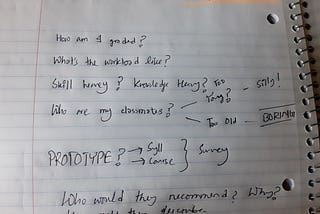 How am I graded?
What's the workload like?
Skill heavy? Knowledge Heavy? Too
Young? - Silly!
Who are my classmates?
Too Old - BORING
PROTOTYPE? → Syll
→ Course } Survey
Who would they recommend? Why?
would they describe